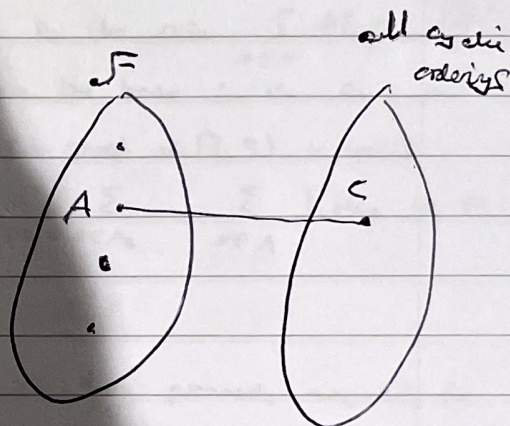 all cyclic
orderings
F
A
C